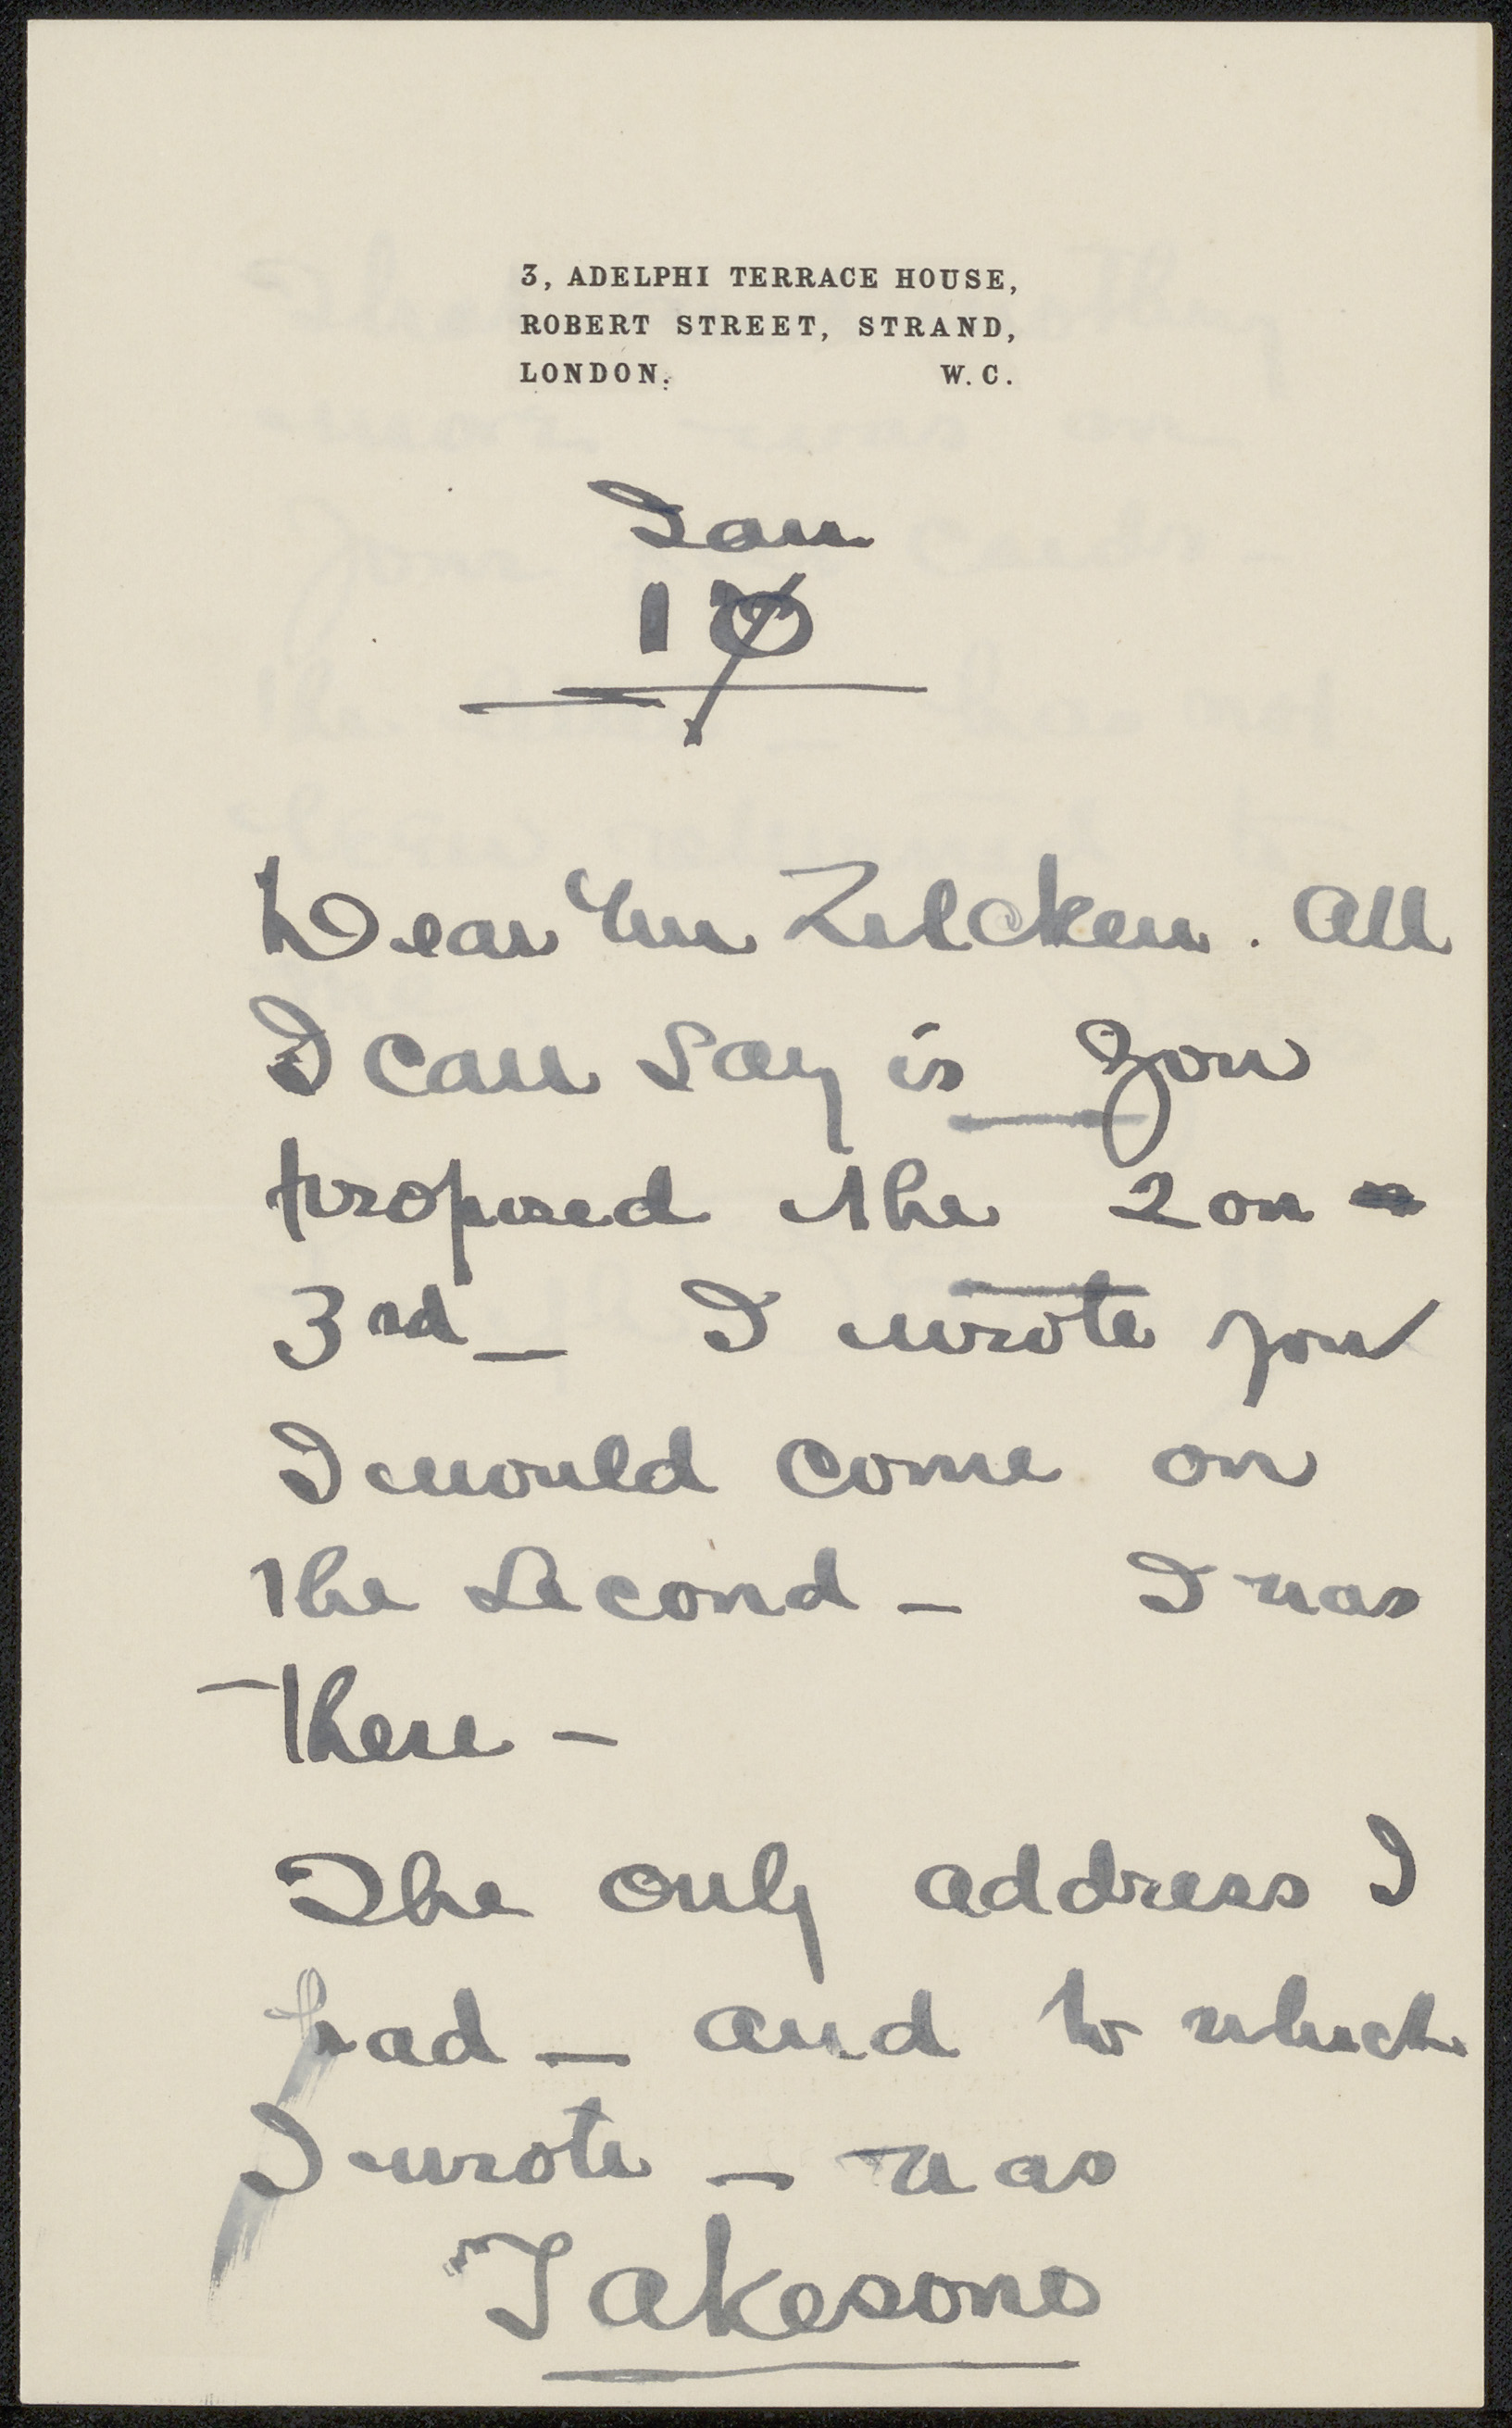 3, ADELPHI TERRACE HOUSE,
ROBERT STREET, STRAND,
LONDON. W.C.
Jan
10
Dear Mr Zilcken. All
I can say is you
proposed the 2 or
3rd — I wrote you
I would come on
the Second — I was
there —
The only address I
had — and to which
I wrote — was
Takesono